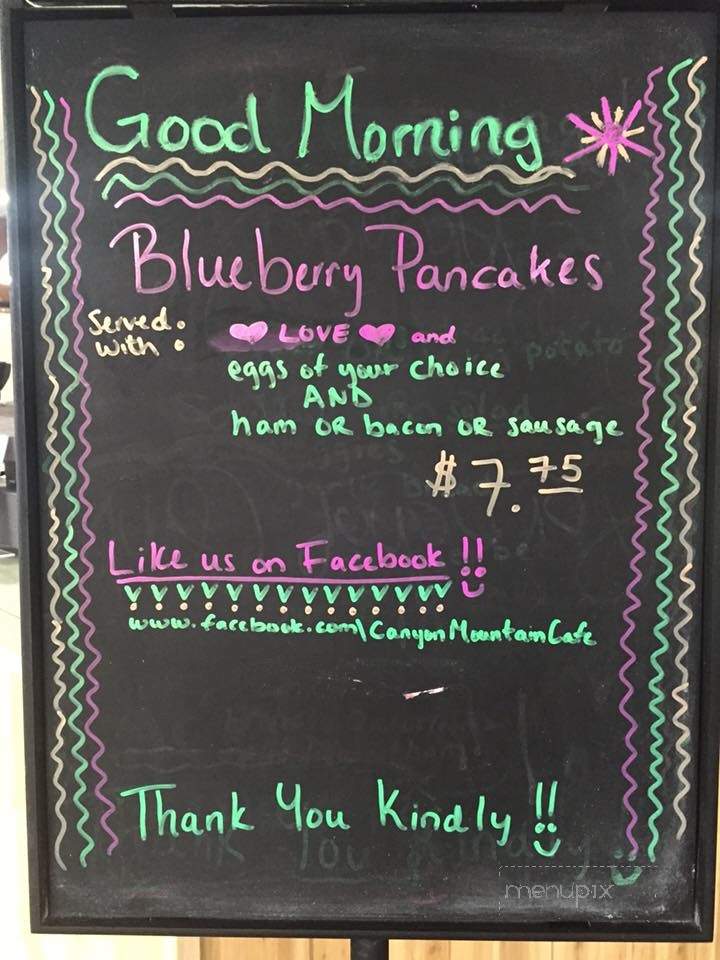 Good Morning
Blueberry Pancakes
Served
with :
LOVE and
eggs of your choice
AND
ham OR bacon OR sausage
$7.75
Like us on Facebook !!
www.facebook.com\CanyonMountainCafe
Thank You Kindly !!
menupix